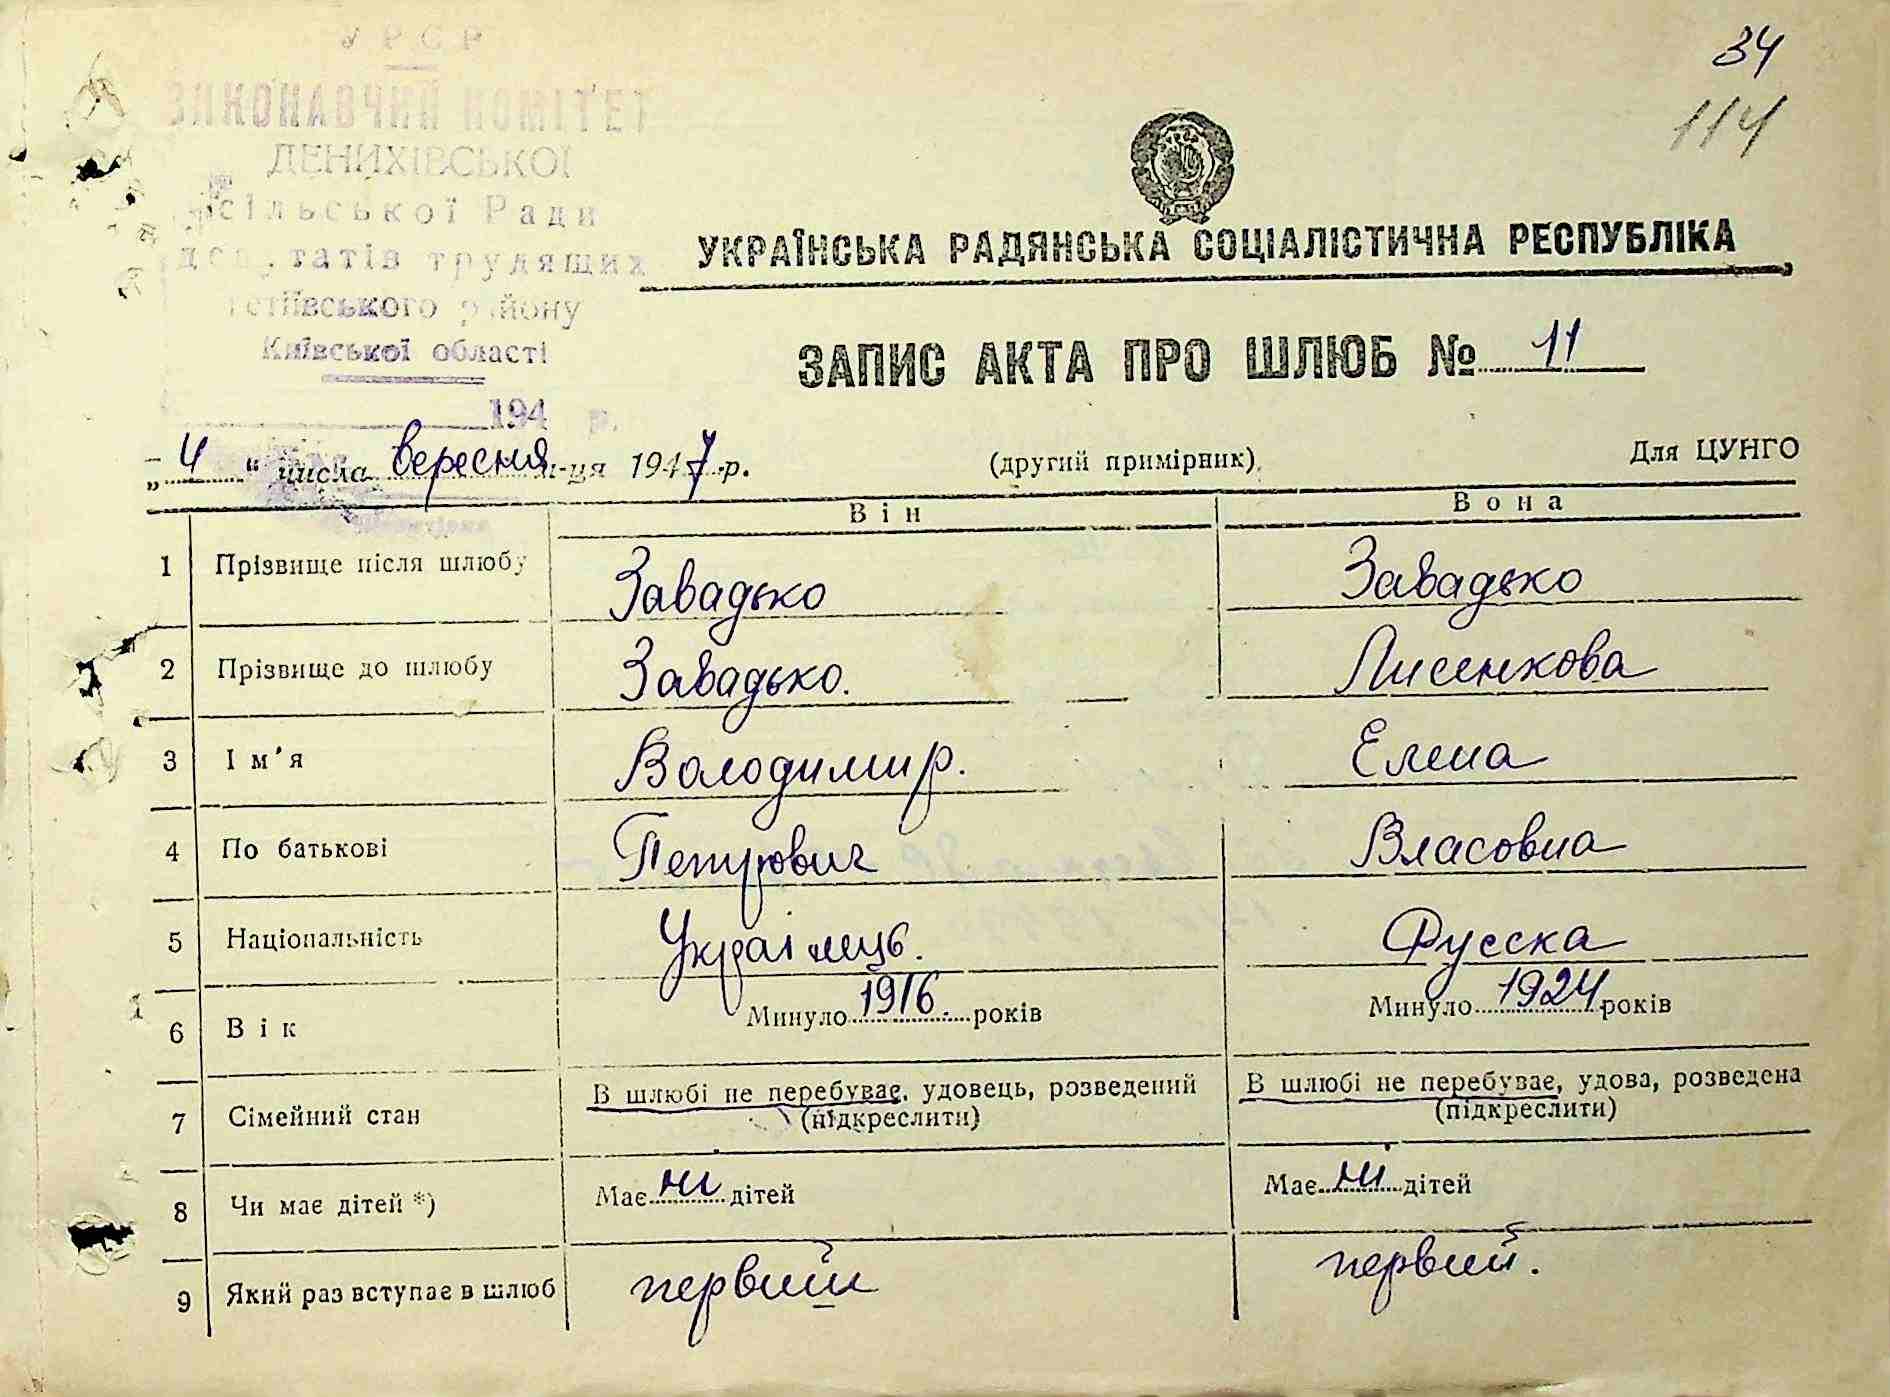 УРСР
ВИКОНАВЧИЙ КОМІТЕТ
ДЕНИХІВСЬКОЇ
сільської Ради
депутатів трудящих
Тетіївського району
Київської області
194 р.
34
114
УКРАЇНСЬКА РАДЯНСЬКА СОЦІАЛІСТИЧНА РЕСПУБЛІКА
ЗАПИС АКТА ПРО ШЛЮБ № 11
„ 4 “ числа вересня м-ця 1947 р. (другий примірник) Для ЦУНГО
Він Вона
1 Прізвище після шлюбу Завадько Завадько
2 Прізвище до шлюбу Завадько. Лисенкова
3 Ім'я Володимир. Елена
4 По батькові Петрович Власовна
5 Національність Українець. Русска
6 Вік Минуло 1916. років Минуло 1924 років
7 Сімейний стан В шлюбі не перебуває, удовець, розведений (підкреслити) В шлюбі не перебуває, удова, розведена (підкреслити)
8 Чи має дітей *) Має ні дітей Має ні дітей
9 Який раз вступає в шлюб первий первий.